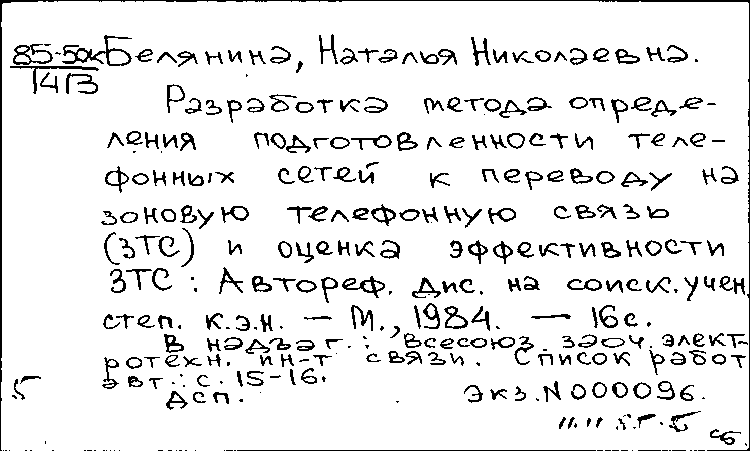 85-50к Белянина, Наталья Николаевна.
14
Разработка метода опреде-
ления подготовленности теле-
фонных сетей к переводу на
зоновую телефонную связь
(ЗТС) и оценка эффективности
ЗТС : Автореф. дис. на соиск. учен.
степ. к.э.н. — М., 1984. — 16с.
В надзаг.: Всесоюз. заоч. элект-
ротехн. ин-т связи. Список работ
авт.: с. 15-16.
5 ДСП. Экз. N 000096.
сб.